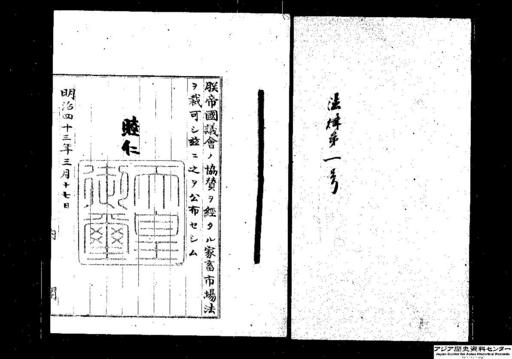 法律第一号
朕帝國議會ノ協賛ヲ經タル家畜市場法
ヲ裁可シ茲ニ之ヲ公布セシム
睦仁
天皇
御璽
明治四十三年三月十七日
内閣
アジア歴史資料センター
Japan Center for Asian Historical Records